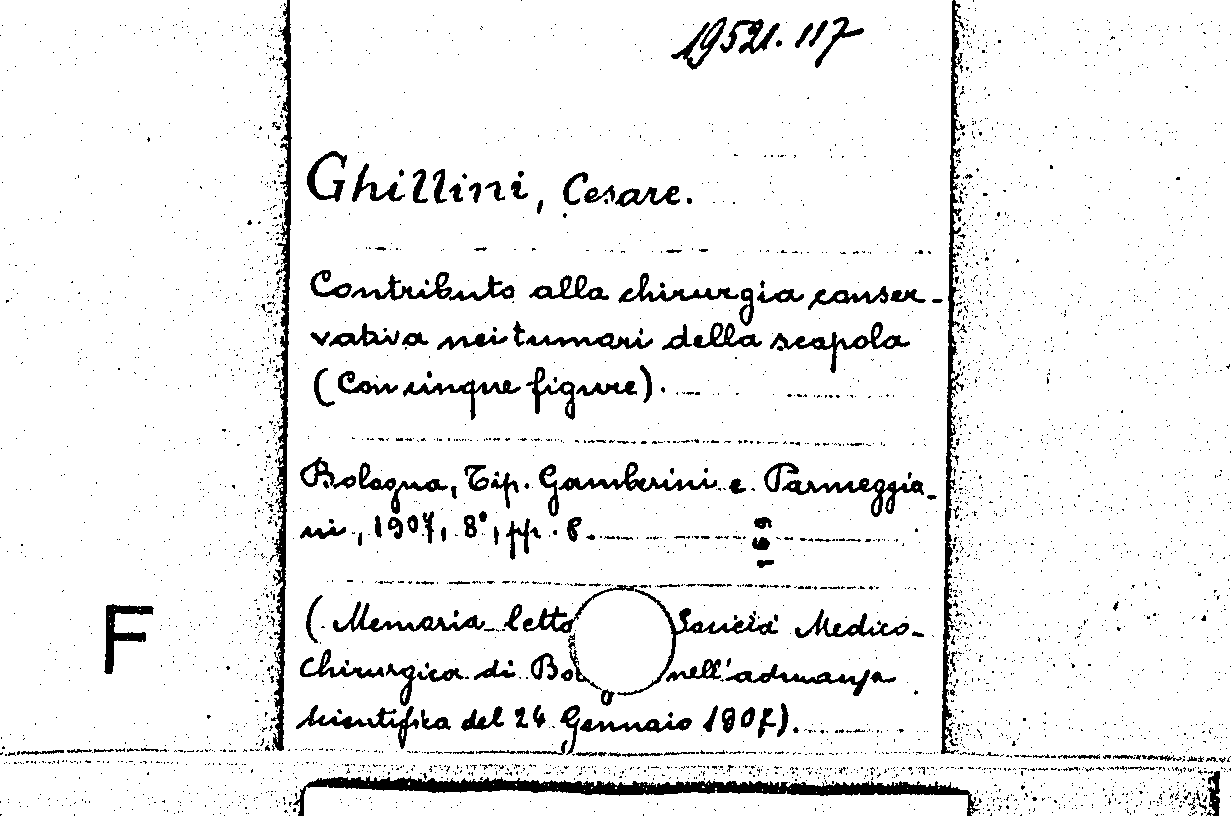 19521.117
Ghillini, Cesare.
Contributo alla chirurgia conser-
vativa nei tumori della scapola
(Con cinque figure).
Bologna, Tip. Gamberini e Parmeggia-
ni, 1907, 8°, pp. 8.
169
(Memoria letta Società Medico-
Chirurgica di Bo nell'adunanza
F
scientifica del 24 Gennaio 1907).